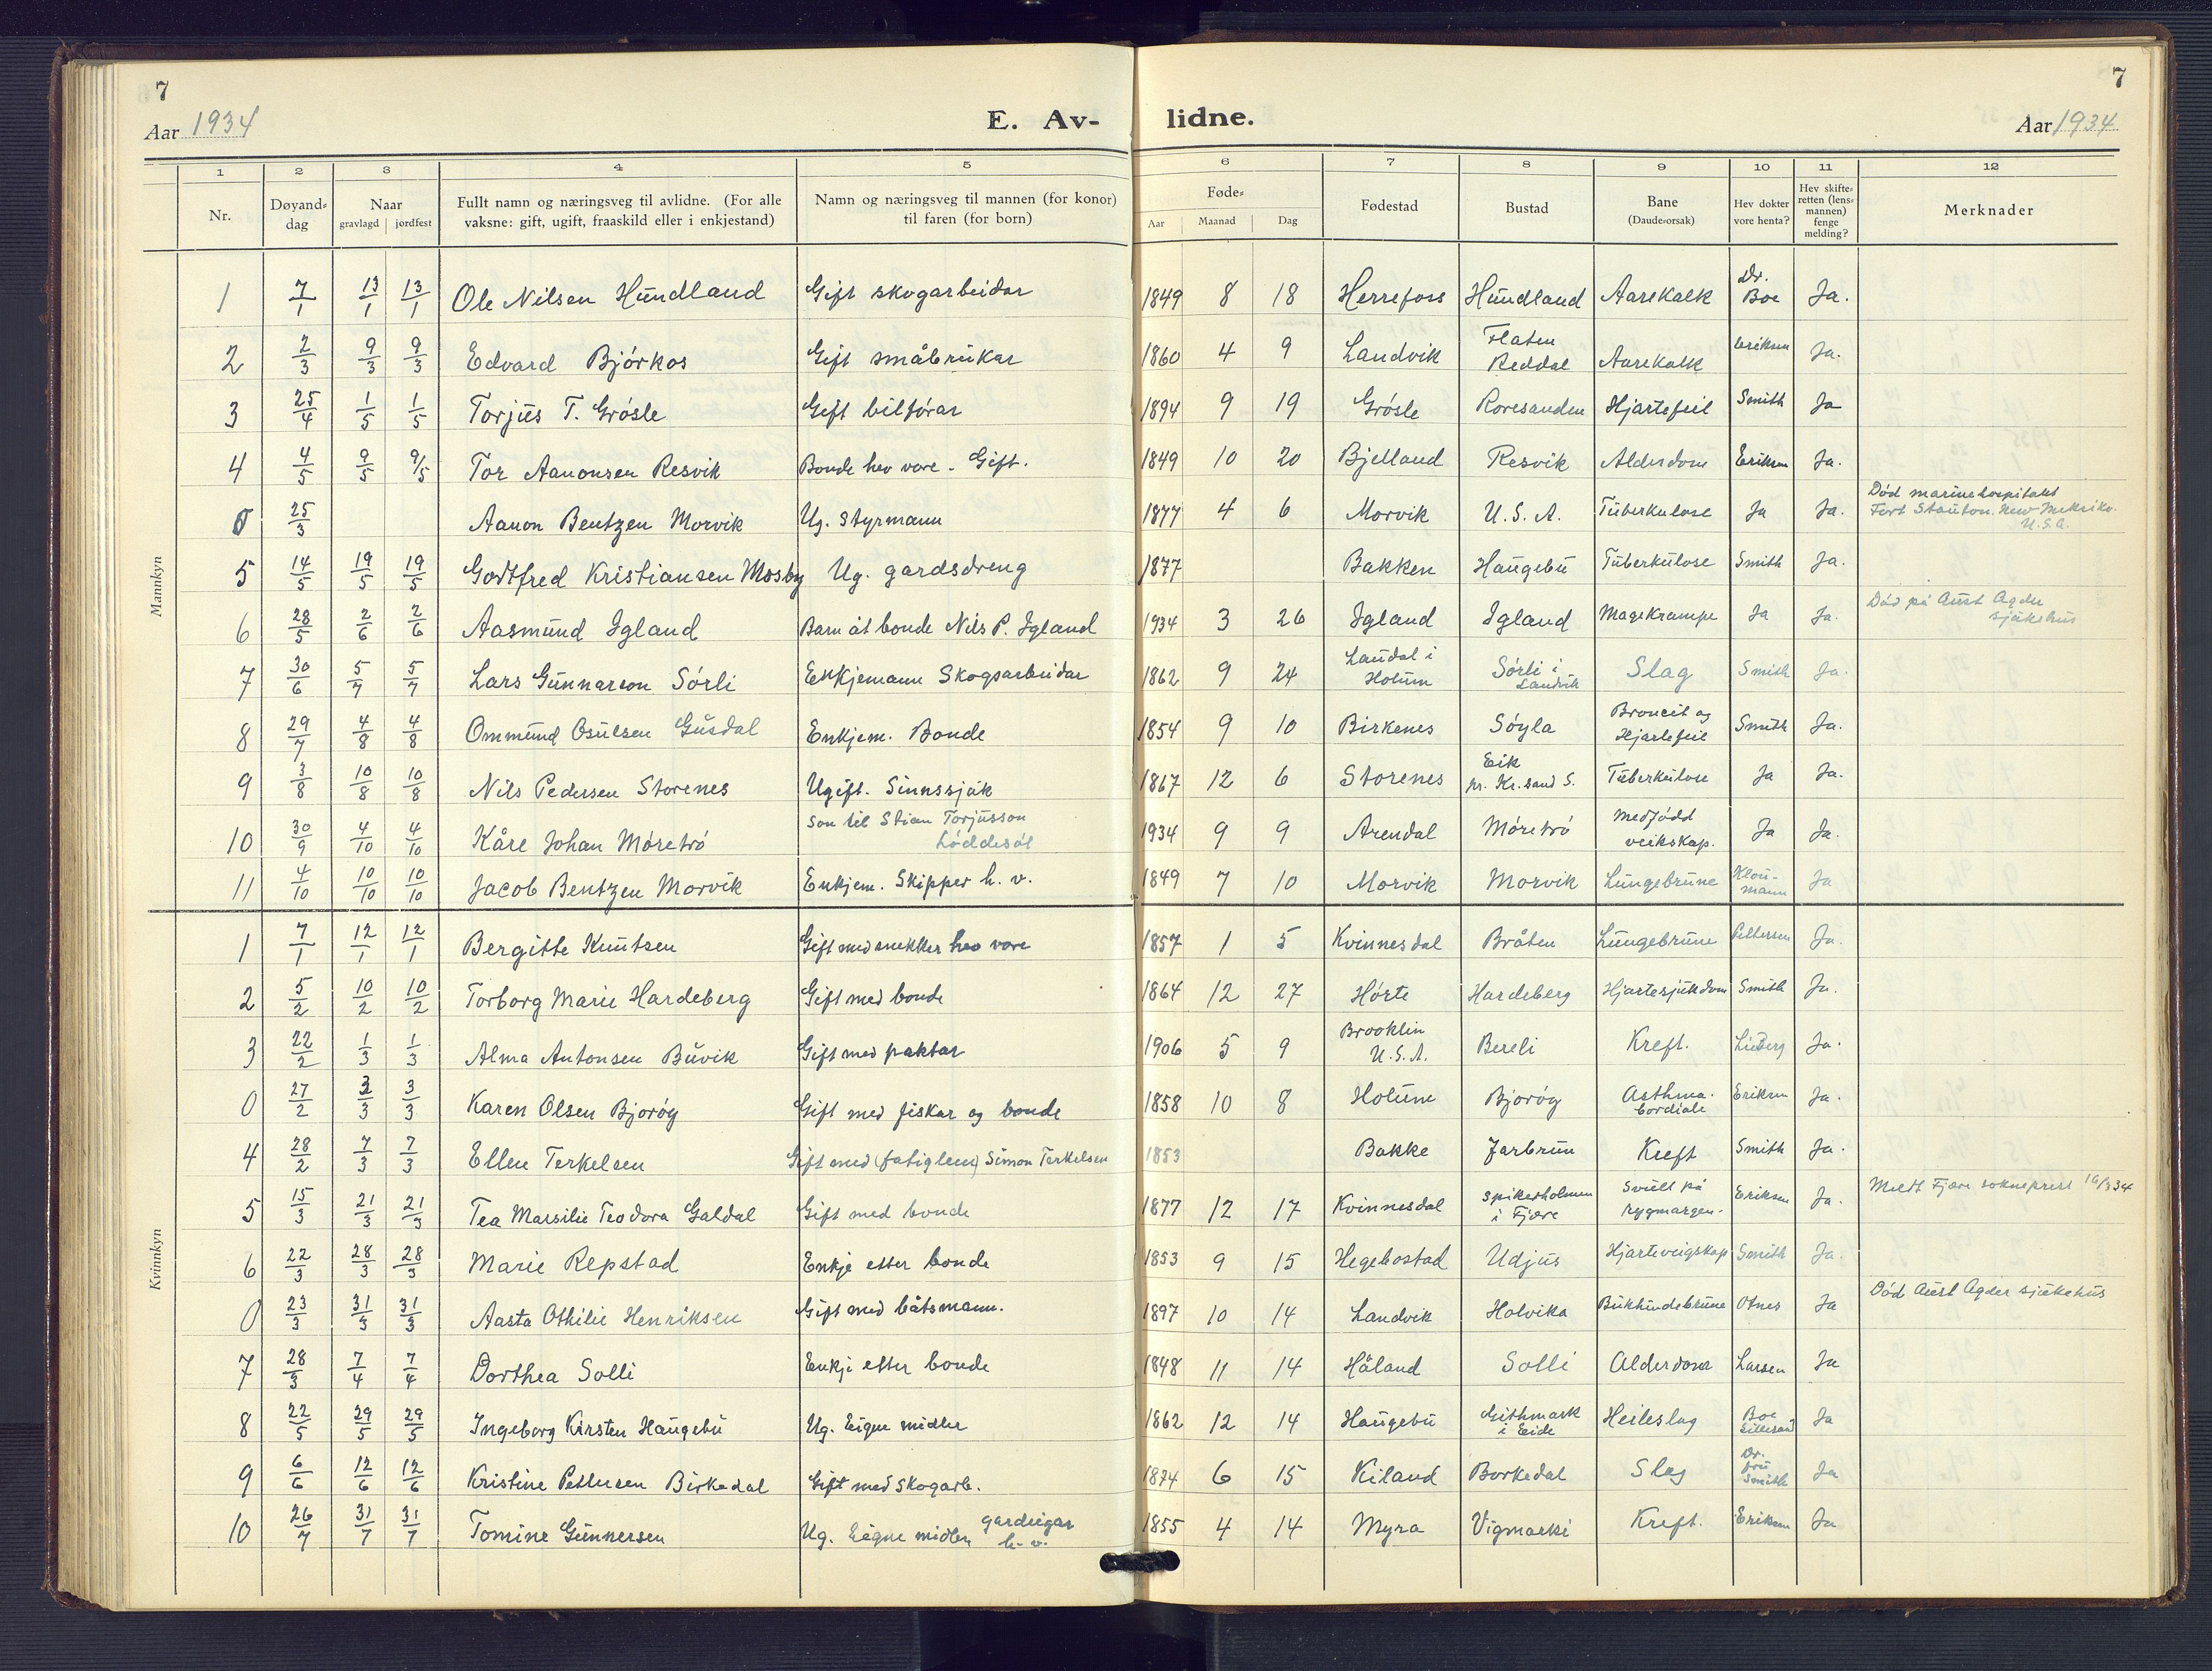 7 7
Aar 1934 E. Av- lidne. Aar 1934
1 2 3 4 5 6 7 8 9 10 11 12
Nr. Døyand=dag Naar gravlagd jordfest Fullt namn og næringsveg til avlidne. (For alle vaksne: gift, ugift, fraaskild eller i enkjestand) Namn og næringsveg til mannen (for konor) til faren (for born) Føde= Aar Maanad Dag Fødestad Bustad Bane (Daude=orsak) Hev dokter vore henta? Hev skifte=retten (lens=mannen) fenge melding? Merknader
Mannkyn
1 7/1 13/1 13/1 Ole Nilsen Hundland Gift skogarbeidar 1849 8 18 Herrefoss Hundland Aarekalk Dr. Boe Ja.
2 2/3 9/3 9/3 Edvard Bjórkos Gift småbrukar 1860 4 9 Landvik Flaten Reddal Aarekalk Eriksen Ja.
3 25/4 1/5 1/5 Torjus T. Grósle Gift bilfórar 1894 9 19 Grósle Roresanden Hjartefeil Smith Ja
4 4/5 9/5 9/5 Tor Aanonsen Resvik Bonde hev vore - Gift. 1849 10 20 Bjelland Resvik Alderdom Eriksen Ja.
0 25/3 Aanon Bentzen Morvik Ug. Styrmann 1877 4 6 Morvik U.S.A. Tuberkulose Ja Ja. Död marinehospitalet Fort Stanton. New Meksiko. U.S.A.
5 14/5 19/5 19/5 Godtfred Kristiansen Mosby Ug. gardsdreng 1877 Bakken Haugebu Tuberkulose Smith Ja.
6 28/5 2/6 2/6 Aasmund Igland Barn åt bonde Nils P. Igland 1934 3 26 Igland Igland Magekrampe Ja Ja. Död på Aust Agder sjúkehus
7 30/6 5/7 5/7 Lars Gunnarson Sórli Enkjemann Skogsarbeidar 1862 9 24 Laudal i Holum Sórli i Landvik Slag Smith Ja.
8 29/7 4/8 4/8 Ommund Osulsen Gusdal Enkjem. Bonde 1854 9 10 Birkenes Sóyla Broncit og Hjartefeil Smith Ja.
9 3/8 10/8 10/8 Nils Pedersen Storenes Ugift. Sinnssjúk 1867 12 6 Storenes Eik pr. Kr.sand S. Tuberkulose Ja Ja.
10 30/9 4/10 4/10 Kåre Johan Móretró son til Stian Torjusson Lóddesól 1934 9 9 Arendal Móretró Medfódd veikskap. Ja Ja.
11 4/10 10/10 10/10 Jacob Bentzen Morvik Enkjem. Skipper h. v. 1849 7 10 Morvik Morvik Lungebrune Klou-mann Ja
Kvinnkyn
1 7/1 12/1 12/1 Bergitte Knutsen Gift med snekker hev vore 1857 1 5 Kvinnesdal Bråten Lungebrune Pettersen Ja.
2 5/2 10/2 10/2 Torborg Marie Hardeberg Gift med bonde 1864 12 27 Hórte Hardeberg Hjartesjukdom Smith Ja.
3 22/2 1/3 1/3 Alma Antonsen Buvik Gift med paktar 1906 5 9 Brooklin U.S.A. Bereli Kreft. Ja.
0 27/2 3/3 3/3 Karen Olsen Bjoróy Gift med fiskar og bonde 1858 10 8 Holum Bjoróy Asthma. Cordiale Eriksen Ja.
4 28/2 7/3 7/3 Ellen Terkelsen Gift med (fatiglem) Simon Terkelsen 1853 Bakke Jarbrun Kreft Smith Ja.
5 15/3 21/3 21/3 Tea Marsilie Teodora Galdal Gift med bonde 1877 12 17 Kvinnesdal Spikerholmen i Fjære Svull på rygmargen. Eriksen Ja. Meldt Fjære sokneprest 16/3 34
6 22/3 28/3 28/3 Marie Repstad Enkje etter bonde 1853 9 15 Hegebostad Udjus Hjarteveigskap Smith Ja.
0 23/3 31/3 31/3 Aasta Othilie Henriksen Gift med båtsmann. 1897 10 14 Landvik Holvika Bukhindebrune Otnes Ja Död Aust Agder sjúkehus
7 28/3 7/4 7/4 Dorthea Solli Enkje etter bonde 1848 11 14 Håland Solli Alderdom Larsen Ja
8 22/5 29/5 29/5 Ingeborg Kirsten Haugebu Ug. Eigne midler 1862 12 14 Haugebu Githmark i Eide Heileslag Boe Lillesand Ja
9 6/6 12/6 12/6 Kristine Pettersen Birkedal Gift med skogarb. 1874 6 15 Kiland Borkedal Slag Dr. fru Smith Ja
10 26/7 31/7 31/7 Tomine Gunnersen Ug. Eigne midler gardeigar h. v. 1855 4 14 Myra Vigmarki Kreft. Eriksen Ja